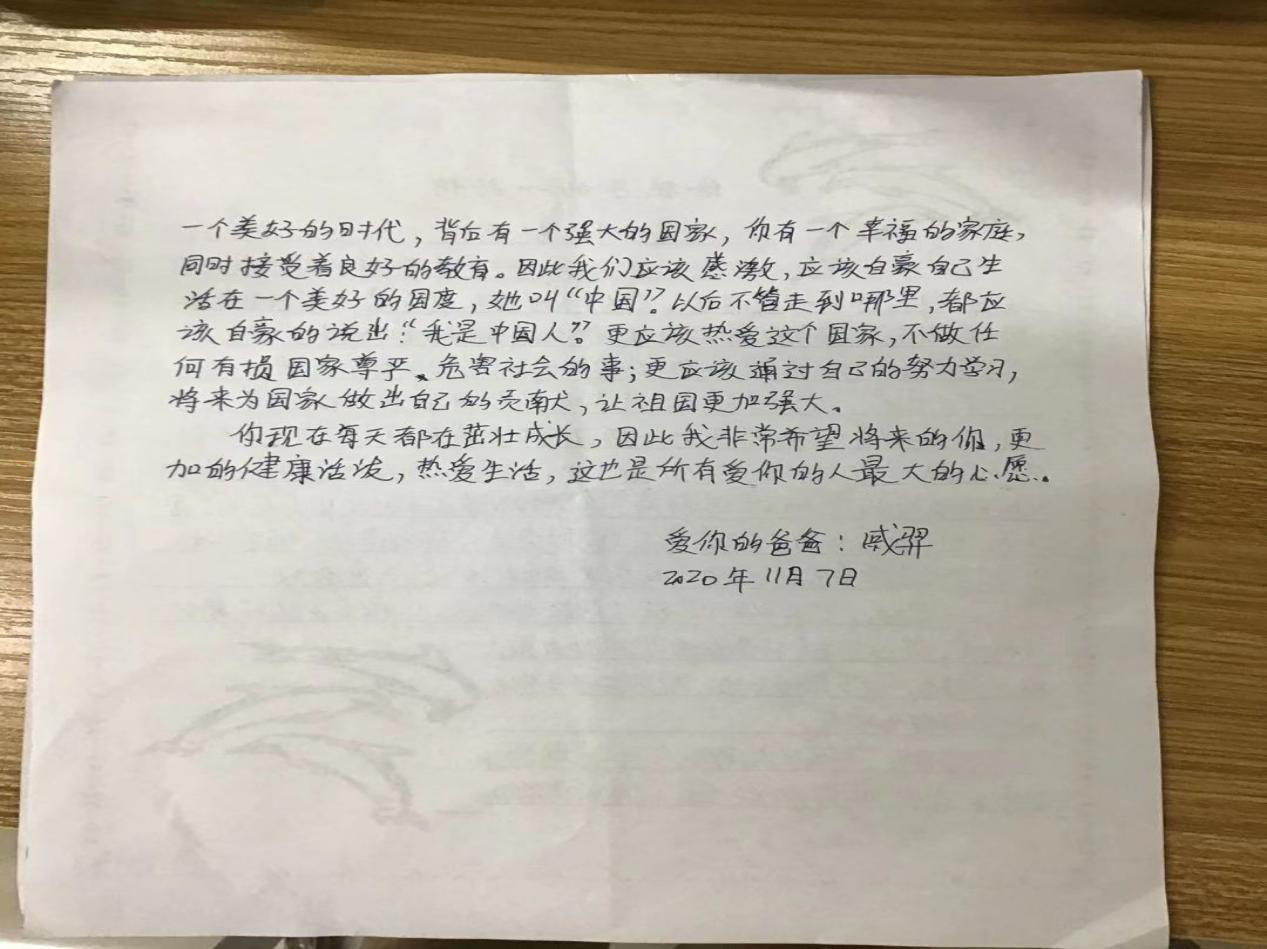 一个美好的时代，背后有一个强大的国家，你有一个幸福的家庭，
同时接受着良好的教育。因此我们应该感激，应该自豪自己生
活在一个美好的国度，她叫“中国”。以后不管走到哪里，都应
该自豪的说出：“我是中国人”。更应该热爱这个国家，不做任
何有损国家尊严、危害社会的事；更应该通过自己的努力学习，
将来为国家做出自己的贡献，让祖国更加强大。
你现在每天都在茁壮成长，因此我非常希望将来的你，更
加的健康活泼，热爱生活，这也是所有爱你的人最大的心愿。
爱你的爸爸：戚羿
2020年11月7日